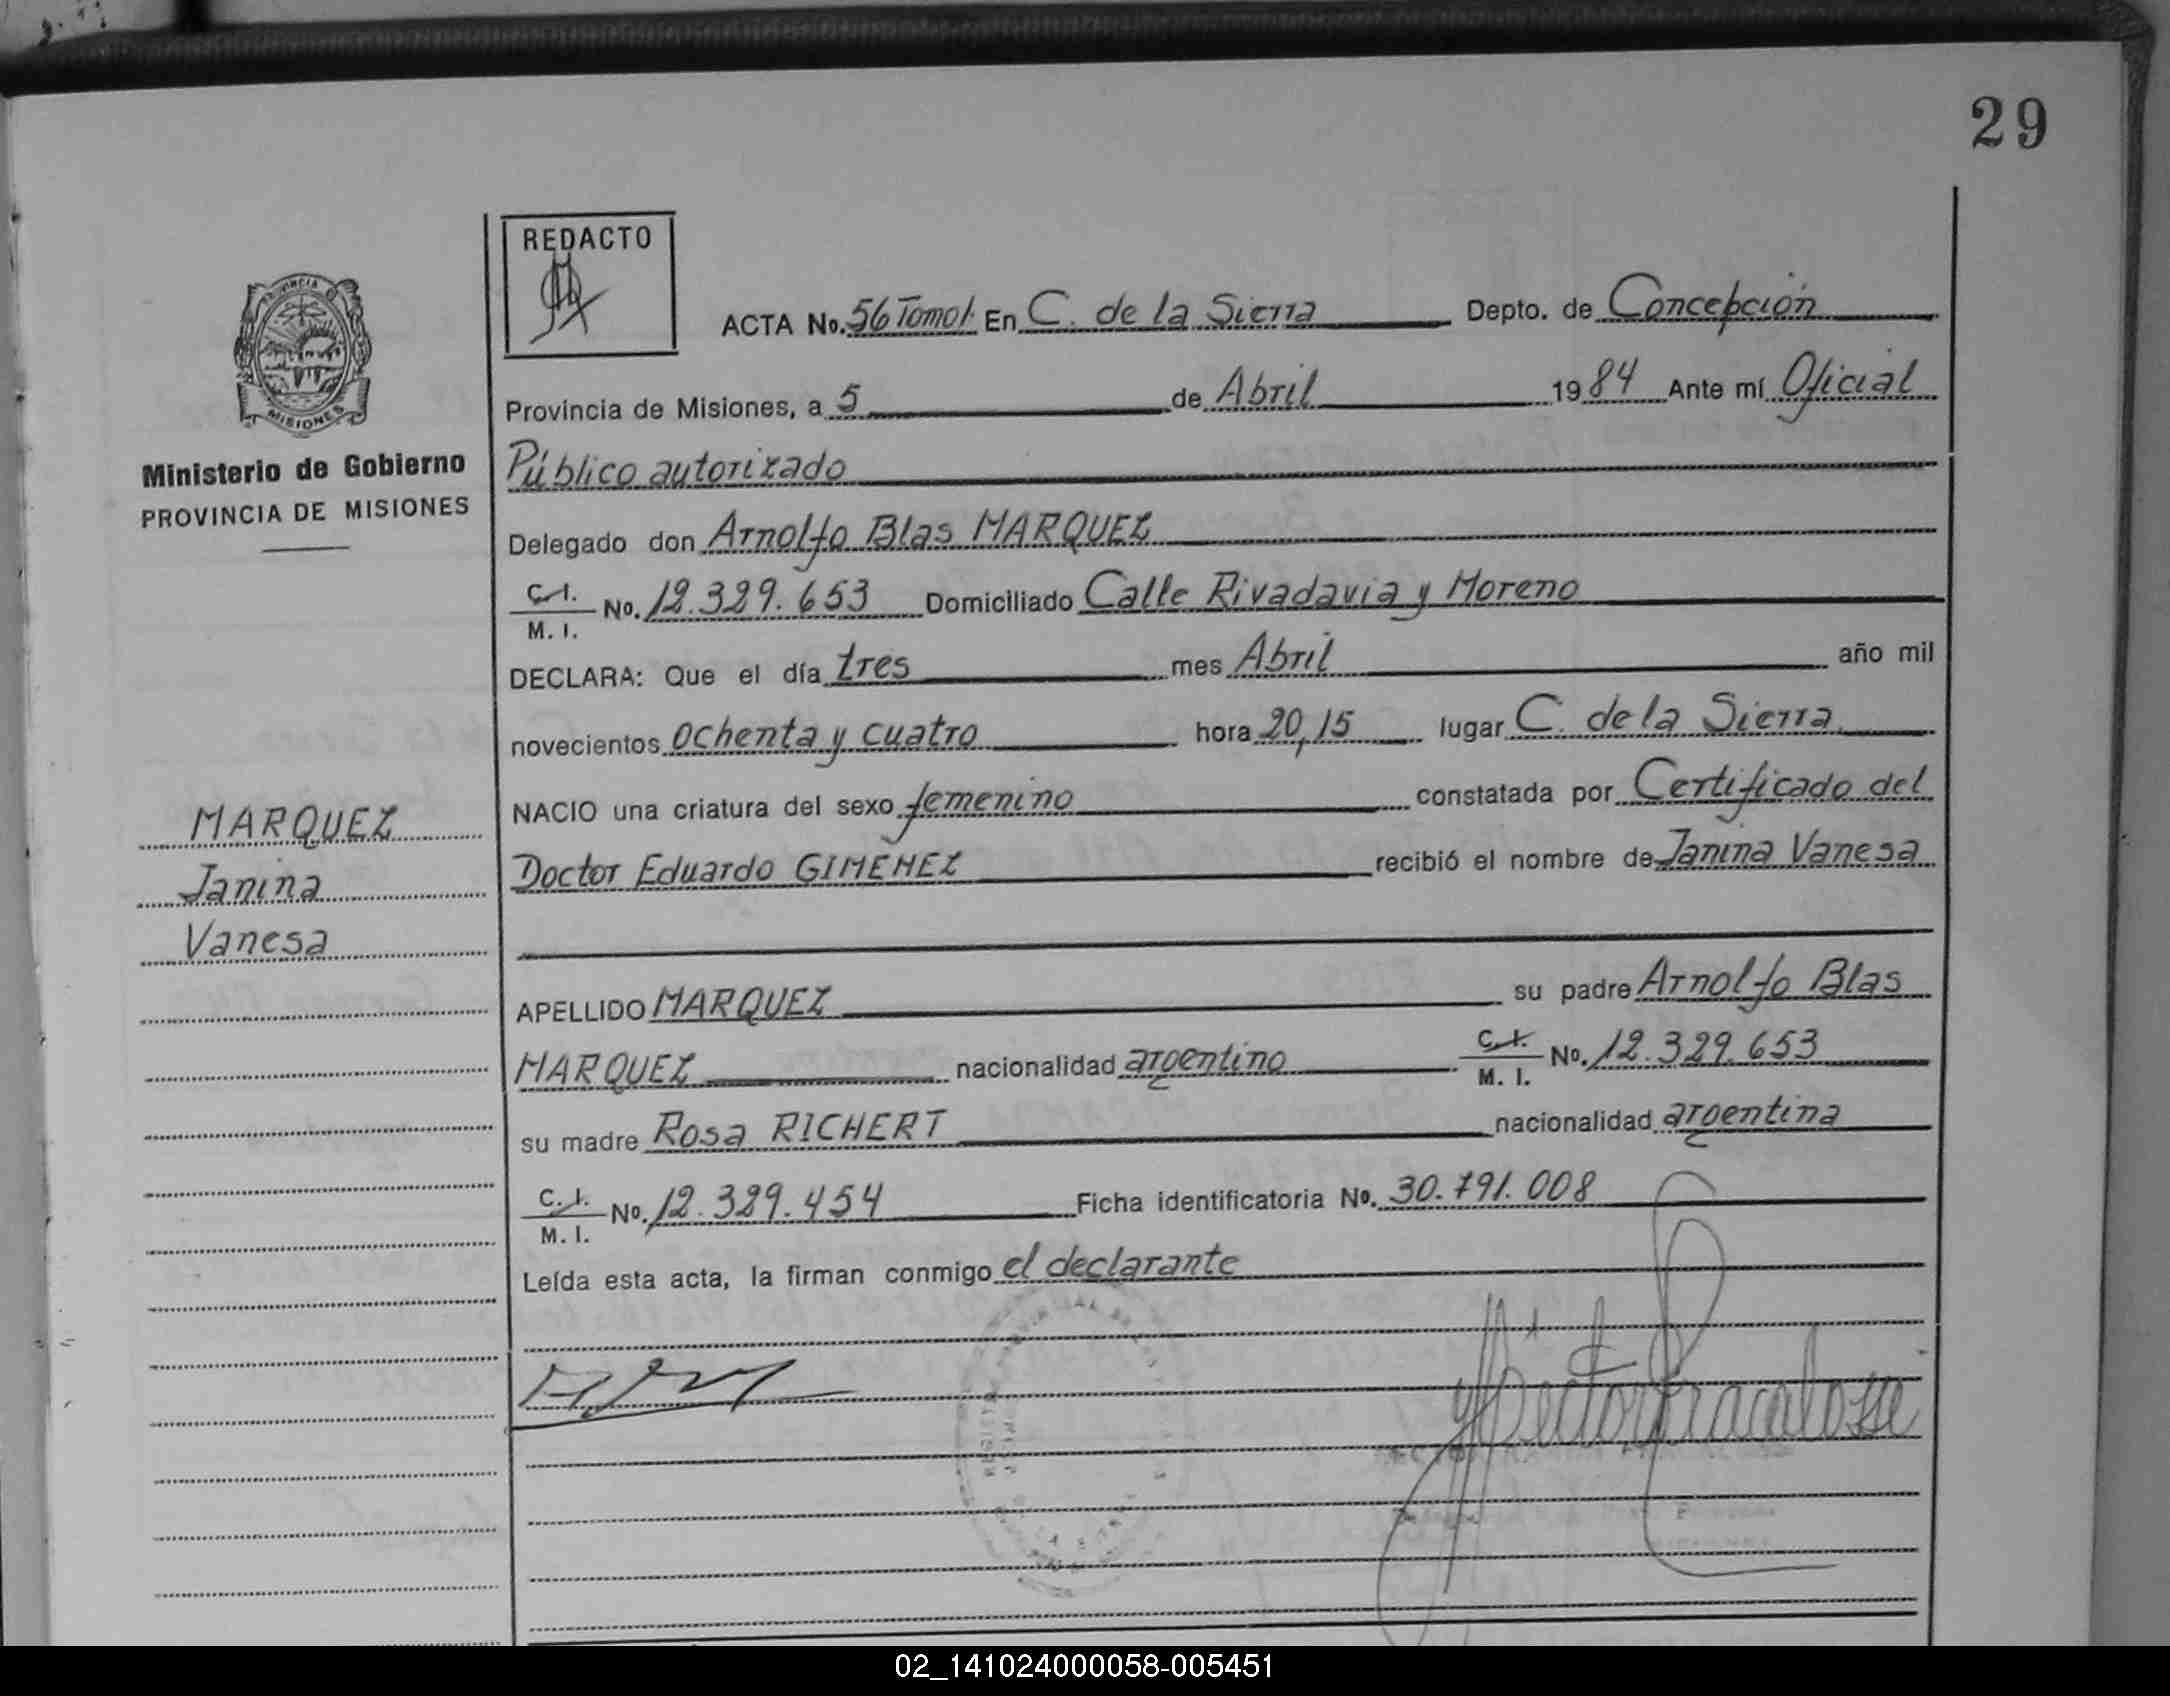 29
REDACTO
ACTA No. 56 Tomo I. En C. de la Sierra Depto. de Concepción
Provincia de Misiones, a 5 de Abril 1984 Ante mí Oficial
Público autorizado
Delegado don Arnolfo Blas MARQUEZ
C.I. M. I. No. 12.329.653 Domiciliado Calle Rivadavia y Moreno
DECLARA: Que el día tres mes Abril año mil
novecientos ochenta y cuatro hora 20,15 lugar C. de la Sierra
NACIO una criatura del sexo femenino constatada por Certificado del
Doctor Eduardo GIMENEZ recibió el nombre de Janina Vanesa
APELLIDO MARQUEZ su padre Arnolfo Blas
MARQUEZ nacionalidad argentino C.I. M. I. No. 12.329.653
su madre Rosa RICHERT nacionalidad argentina
C.I. M. I. No. 12.329.454 Ficha identificatoria No. 30.791.008
Leída esta acta, la firman conmigo el declarante
MISIONES
Ministerio de Gobierno
PROVINCIA DE MISIONES
MARQUEZ
Janina
Vanesa
02_141024000058-005451